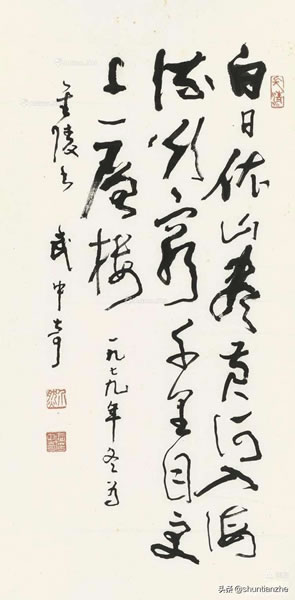 白日依山盡黃河入海
流欲窮千里目更
上一層樓 一九七九年冬
金陵 武中奇
头条 @shuntianzhe